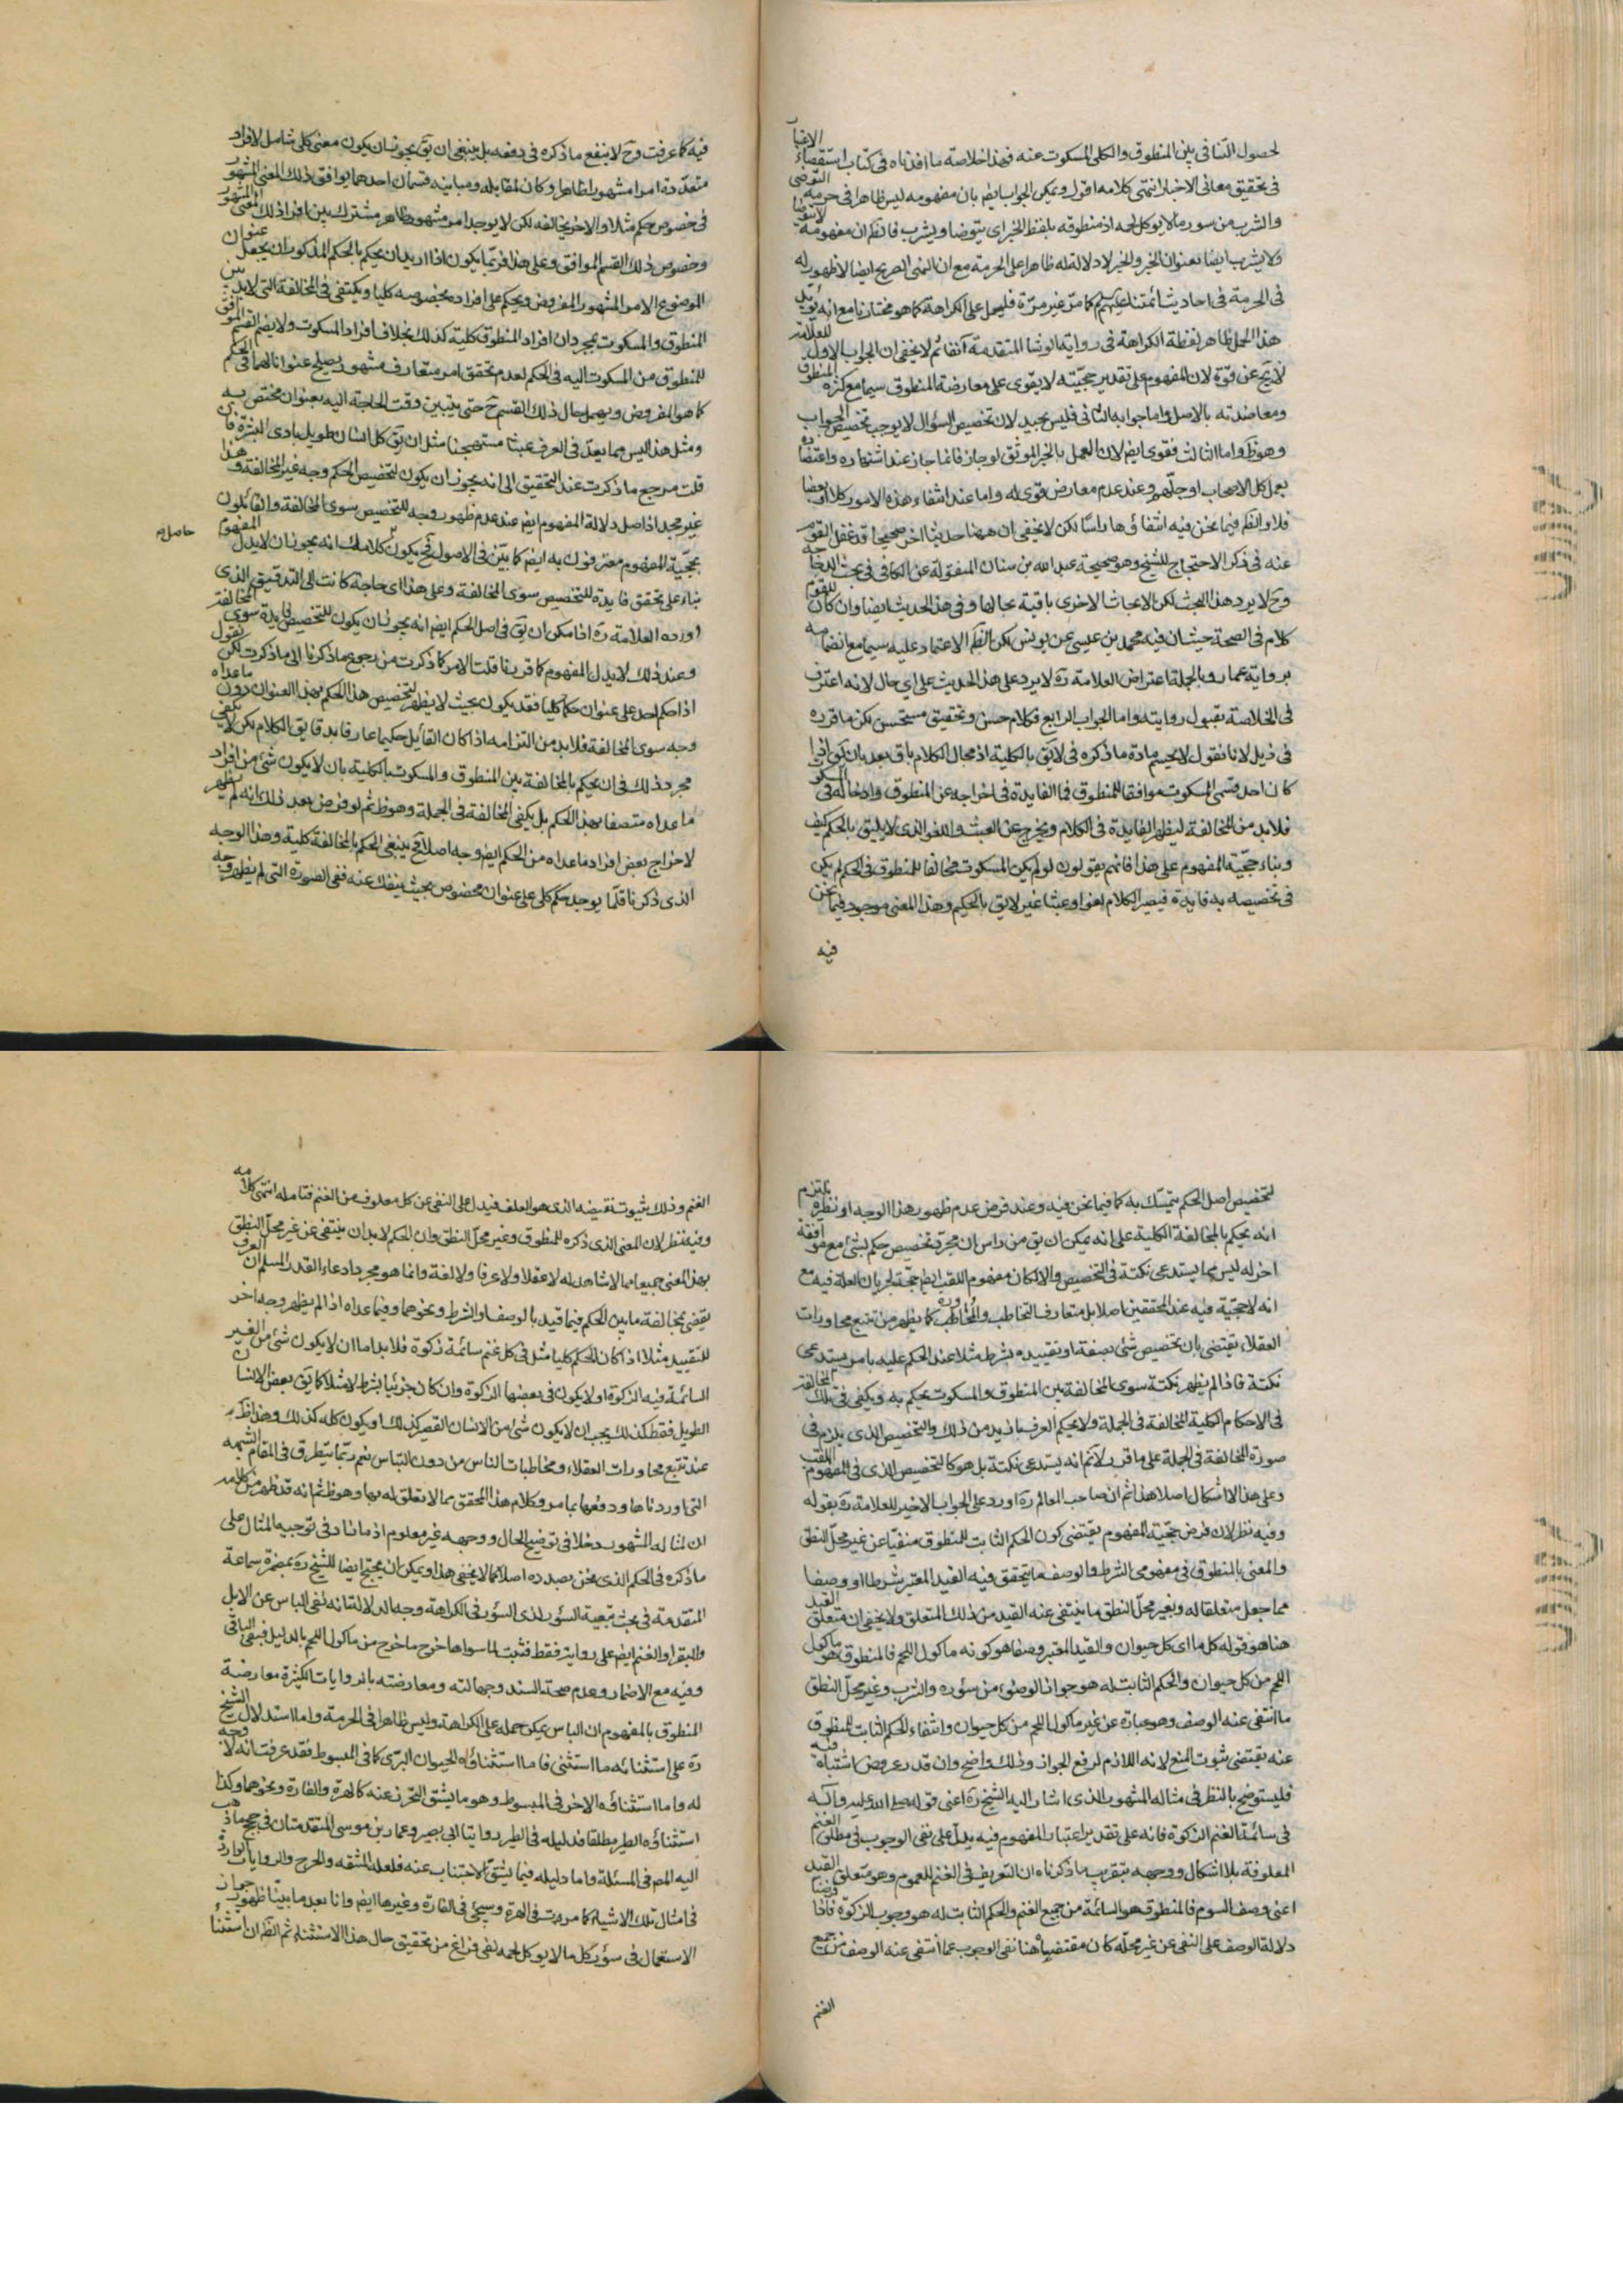 لحصول التنافى بين المنطوق والكلى المسكوت عنه فهذا خلاصة ما افدناه فى كتاب استقصاء الاعتبار
فى تحقيق معانى الاخبار انتهى كلامه اقول ويمكن الجواب ايضا بان مفهومه ليس ظاهرا فى حرمة التوضى
والشرب من سور ما لا يوكل لحمه اذ منطوقه بلفظ الخبر اى يتوضا ويشرب فالظم ان مفهومه لا يتوضا
ولا يشرب ايضا بعنوان الخبر والخبر لا دلالة له ظاهرا على الحرمة مع ان النهى الصريح ايضا لا ظهور له
فى الحرمة فى احاديث ائمتنا عليهم كما مر غير مرة فليحمل على الكراهة كما هو مختارنا مع انه يؤيد
هذا الحمل ظاهر لفظة الكراهة فى رواية الوشا المتقدمة آنفا ثم لا يخفى ان الجواب الاول للعلامة
لا يخ عن قوة لان المفهوم على تقدير حجيته لا يقوى على معارضة المنطوق سيما مع كثرة المنطوق
ومعاضدته بالاصل واما جوابه الثانى فليس بجيد لان تخصيص السؤال لا يوجب تخصيص الجواب
وهو ظ واما الثالث فقوى ايضا لان العمل بالخبر الموثق لو جاز فانما جاز عند اشتهاره واعتضاده
بعمل كل الاصحاب او جلهم وعند عدم معارض قوى له واما عند انتفاء هذه الامور كلا او بعضا
فلا والظم فيما نحن فيه انتفاؤها راسا لكن لا يخفى ان ههنا حديثا اخر صحيحا قد غفل القوم
عنه فى ذكر الاحتجاج للشيخ وهو صحيحة عبد الله بن سنان المنقولة عن الكافى فى بحث
وح لا يرد هذا البحث لكن الابحاث الاخرى باقية بحالها وفى هذا الحديث ايضا وان كان للقوم
كلام فى الصحة حيث ان فيه محمد بن عيسى عن يونس لكن الظم الاعتماد عليه سيما مع انضمامه
برواية عمار وبالجملة اعتراض العلامة ره لا يرد على هذا الحديث على اى حال لانه اعترف
فى الخلاصة بقبول روايته واما الجواب الرابع فكلام حسن وتحقيق مستحسن لكن ما قرره
فى ذيل لانا نقول لا يحسم مادة ما ذكره فى لا يق بالكلية اذ مجال الكلام باق بعد بان يق اذا
كان احد قسمى المسكوت موافقا للمنطوق فما الفايدة فى اخراجه عن المنطوق وادخاله فى السكوت
فلا بد من المخالفة ليظهر الفايدة فى الكلام ويخرج عن العبث واللغو الذى لا يليق بالحكم كيف
وبناء حجية المفهوم على هذا فانهم يقولون لو لم يكن المسكوت مخالفا للمنطوق فى الحكم لم يكن
فى تخصيصه به فايدة فيصير الكلام لغوا وعبثا غير لايق بالحكيم وهذا المعنى موجود فيما نحن
فيه
فيه كما عرفت وح لا ينفع ما ذكره فى دفعه بل ينبغى ان يق يجوز ان يكون معنى كلى شامل لافراد
متعددة امرا مشهورا ظاهرا وكان لمقابله ومباينه قسمان احدهما يوافق ذلك المعنى المشهور
فى خصوص حكم مثلا والاخر يخالفه لكن لا يوجد امر مشهور ظاهر مشترك بين افراد ذلك المعنى المشهور
وخصوص ذلك القسم الموافق وعلى هذا فربما يكون اذا اريد ان يحكم بالحكم المذكور ان يجعل عنوان
الموضوع الامر المشهور المفروض ويحكم على افراده بخصوصه كليا ويكتفى فى المخالفة التى لا بد بين
المنطوق والمسكوت بمجرد ان افراد المنطوق كلية كذلك بخلاف افراد المسكوت ولا يضم القسم الموافق
للمنطوق من المسكوت اليه فى الحكم لعدم تحقق امر متعارف مشهور يصلح عنوانا لهما فى الحكم
كما هو المفروض ويهمل حال ذلك القسم ح حتى يتبين وقت الحاجة اليه بعنوان مختص به
ومثل هذا ليس مما يعد فى العرف عبثا مستهجنا مثل ان يق كل انسان طويل بادى البشرة فان
قلت مرجع ما ذكرت عند التحقيق الى انه يجوز ان يكون لتخصيص الحكم وجه غير المخالفة وهذا
غير مجد اذ اصل دلالة المفهوم ايضا عند عدم ظهور وجه للتخصيص سوى المخالفة والقائلون
بحجية المفهوم معترفون به ايضا كما بين فى الاصول فح يكون حاصل كلامك انه يجوز ان لا يدل المفهوم
بناء على تحقق فايدة للتخصيص سوى المخالفة وعلى هذا اى حاجة كانت الى التدقيق الذى
اورده العلامة ره اذ امكن ان يق فى اصل الحكم ايضا انه يجوز ان يكون للتخصيص فايدة سوى المخالفة
وعند ذلك لا يدل المفهوم كما قررنا قلت الامر كما ذكرت من رجوع ما ذكرنا الى ما ذكرت لكن نقول
اذا حكم احد على عنوان حكما كليا فقد يكون بحيث لا يظهر لتخصيص هذا الحكم بهذا العنوان دون ما عداه
وجه سوى المخالفة فلا بد من التزامه اذا كان القايل حكيما عارفا بدقايق الكلام لكن لا يكفى
مجرد ذلك فى ان يحكم بالمخالفة بين المنطوق والمسكوت بالكلية بان لا يكون شئ من افراد
ما عداه متصفا بهذا الحكم بل يكفى المخالفة فى الجملة وهو ظ ثم لو فرض بعد ذلك انه لم يظهر
لاخراج بعض افراد ما عداه من الحكم ايضا وجه اصلا فح ينبغى الحكم بالمخالفة كلية وهذا الوجه
الذى ذكرنا قلما يوجد حكم كلى على عنوان مخصوص بحيث ينفك عنه ففى الصورة التى لم يظهر وجه
لتخصيص اصل الحكم يتمسك به كما فيما نحن فيه وعند فرض عدم ظهور هذا الوجه او نظيره يلتزم
انه يحكم بالمخالفة الكلية على انه يمكن ان يق من راس ان مجرد تخصيص حكم بشئ مع موافقة
اخر له ليس مما يستدعى نكتة فى التخصيص والا لكان مفهوم اللقب ايضا حجة لجريان العلة فيه مع
انه لا حجية فيه عند المحققين اصلا بل متعارف التخاطب كما يظهر من تتبع محاورات
العقلاء يقتضى بان تخصيص شئ بصفة او تقييده بشرط مثلا عند الحكم عليه بامر يستدعى
نكتة فاذا لم يظهر نكتة سوى المخالفة بين المنطوق والمسكوت يحكم به ويكفى فى تلك المخالفة
فى الاحكام الكلية المخالفة فى الجملة ولا يحكم العرف بازيد من ذلك والتخصيص الذى يلزم فى
صورة المخالفة فى الجملة على ما قرر لا نم انه يستدعى نكتة بل هو كالتخصيص الذى فى المفهوم اللقب
وعلى هذا لا اشكال اصلا هذا ثم ان صاحب المعالم ره اورد على الجواب الاخير للعلامة ره بقوله
وفيه نظر لان فرض حجية المفهوم يقتضى كون الحكم الثابت للمنطوق منفيا عن غير محل النطق
والمعنى بالمنطوق فى مفهومى الشرط والوصف ما يتحقق فيه القيد المعتبر شرطا او وصفا
مما جعل متعلقا له وبغير محل النطق ما ينتفى عنه القيد من ذلك المتعلق ولا يخفى ان متعلق القيد
هنا هو قوله كل ما اى كل حيوان والقيد المعتبر وصفا هو كونه ماكول اللحم فالمنطوق هو ماكول
اللحم من كل حيوان والحكم الثابت له هو جواز الوضوء من سؤره والشرب وغير محل النطق
ما انتفى عنه الوصف وهو عبارة عن غير ماكول اللحم من كل حيوان وانتفاء الحكم الثابت للمنطوق
عنه يقتضى ثبوت المنع لانه اللازم لرفع الجواز وذلك واضح وان قدر عروض اشتباه فيه
فليستوضح بالنظر فى مثاله المشهور الذى اشار اليه الشيخ ره اعنى قوله صلى الله عليه وآله
فى سائمة الغنم الزكوة فانه على تقدير اعتبار المفهوم فيه يدل على نفى الوجوب فى مطلق الغنم
المعلوفة بلا اشكال ووجهه بتقريب ما ذكرناه ان التعريف فى الغنم للعموم وهو متعلق القيد
اعنى وصف السوم فالمنطوق هو السائمة من جميع الغنم والحكم الثابت له هو وجوب الزكوة فاذا فرضنا
دلالة الوصف على النفى عن غير محله كان مقتضيا هنا نفى الوجوب عما انتفى عنه الوصف من جميع
الغنم
الغنم وذلك بثبوت نقيضه الذى هو العلف فيدل على النفى عن كل معلوف من الغنم فتامله انتهى كلامه
وفيه نظر لان المعنى الذى ذكره للمنطوق وغير محل النطق وان الحكم لا بد ان ينتفى عن غير محل النطق
بهذا المعنى جميعا مما لا شاهد له لا عقلا ولا عرفا ولا لغة وانما هو مجرد ادعاء القدر المسلم ان العرف
يقضى بمخالفة ما بين الحكم فيما قيد بالوصف او الشرط ونحوهما وفيما عداه اذا لم يظهر وجه اخر
للتقييد مثلا اذا كان الحكم كليا مثل فى كل غنم سائمة زكوة فلا بد اما ان لا يكون شئ من الغير
السائمة فيه الزكوة او لا يكون فى بعضها الزكوة وان كان جزئيا بشرط لا مثلا كما يق بعض الانسان
الطويل فقط كذلك يجب ان لا يكون شئ من الانسان القصير كذلك او يكون كله كذلك وهذا ظ
عند تتبع محاورات العقلاء ومخاطبات الناس من دون التباس نعم ربما يتطرق فى المقام الشبهة
التى اوردناها ودفعها بما مر وكلام هذا المحقق مما لا تعلق له بها وهو ظ ثم انه قد ظهر من كلامه
ان لمثاله المشهور دخلا فى توضيح الحال ووجهه غير معلوم اذ ما زاد فى توجيه المثال على
ما ذكره فى الحكم الذى نحن بصدده اصلا كما لا يخفى هذا ويمكن ان يحتج ايضا للشيخ ره بمضمرة سماعة
المتقدمة فى بحث تبعية السؤر لذى السؤر فى الكراهة وجه الدلالة انه نفى الباس عن الابل
والبقر والغنم ايضا على رواية فقط فثبت لما سواها خرج ما خرج من ماكول اللحم بالدليل فبقى الباقى
وفيه مع الاضمار وعدم صحة السند وجهالته ومعارضته بالروايات الكثيرة معارضة
المنطوق بالمفهوم ان الباس يمكن حمله على الكراهة وليس ظاهرا فى الحرمة واما استدلال الشيخ
ره على استثنائه ما استثنى فاما استثناؤه الحيوان البرى كما فى المبسوط فقد عرفت انه لا وجه
له واما استثناؤه الاخر فى المبسوط وهو ما يشق التحرز عنه كالهرة والفارة ونحوهما وكذا
استثناؤه الطير مطلقا فدليله فى الطير روايتا ابى بصير وعمار بن موسى المتقدمتان فى حجج ما ذهب
اليه المص فى المسئلة واما دليله فيما يشق الاجتناب عنه فلعله المشقه والحرج والروايات الواردة
فى امثال تلك الاشياء كما مرت فى الهرة وسيجئ فى الفارة وغيرها ايضا وانا بعد ما بينا ظهور جواز
الاستعمال فى سؤر كل ما لا يوكل لحمه لفى فراغ من تحقيق حال هذا الاستثناء ثم الظم ان استثناء